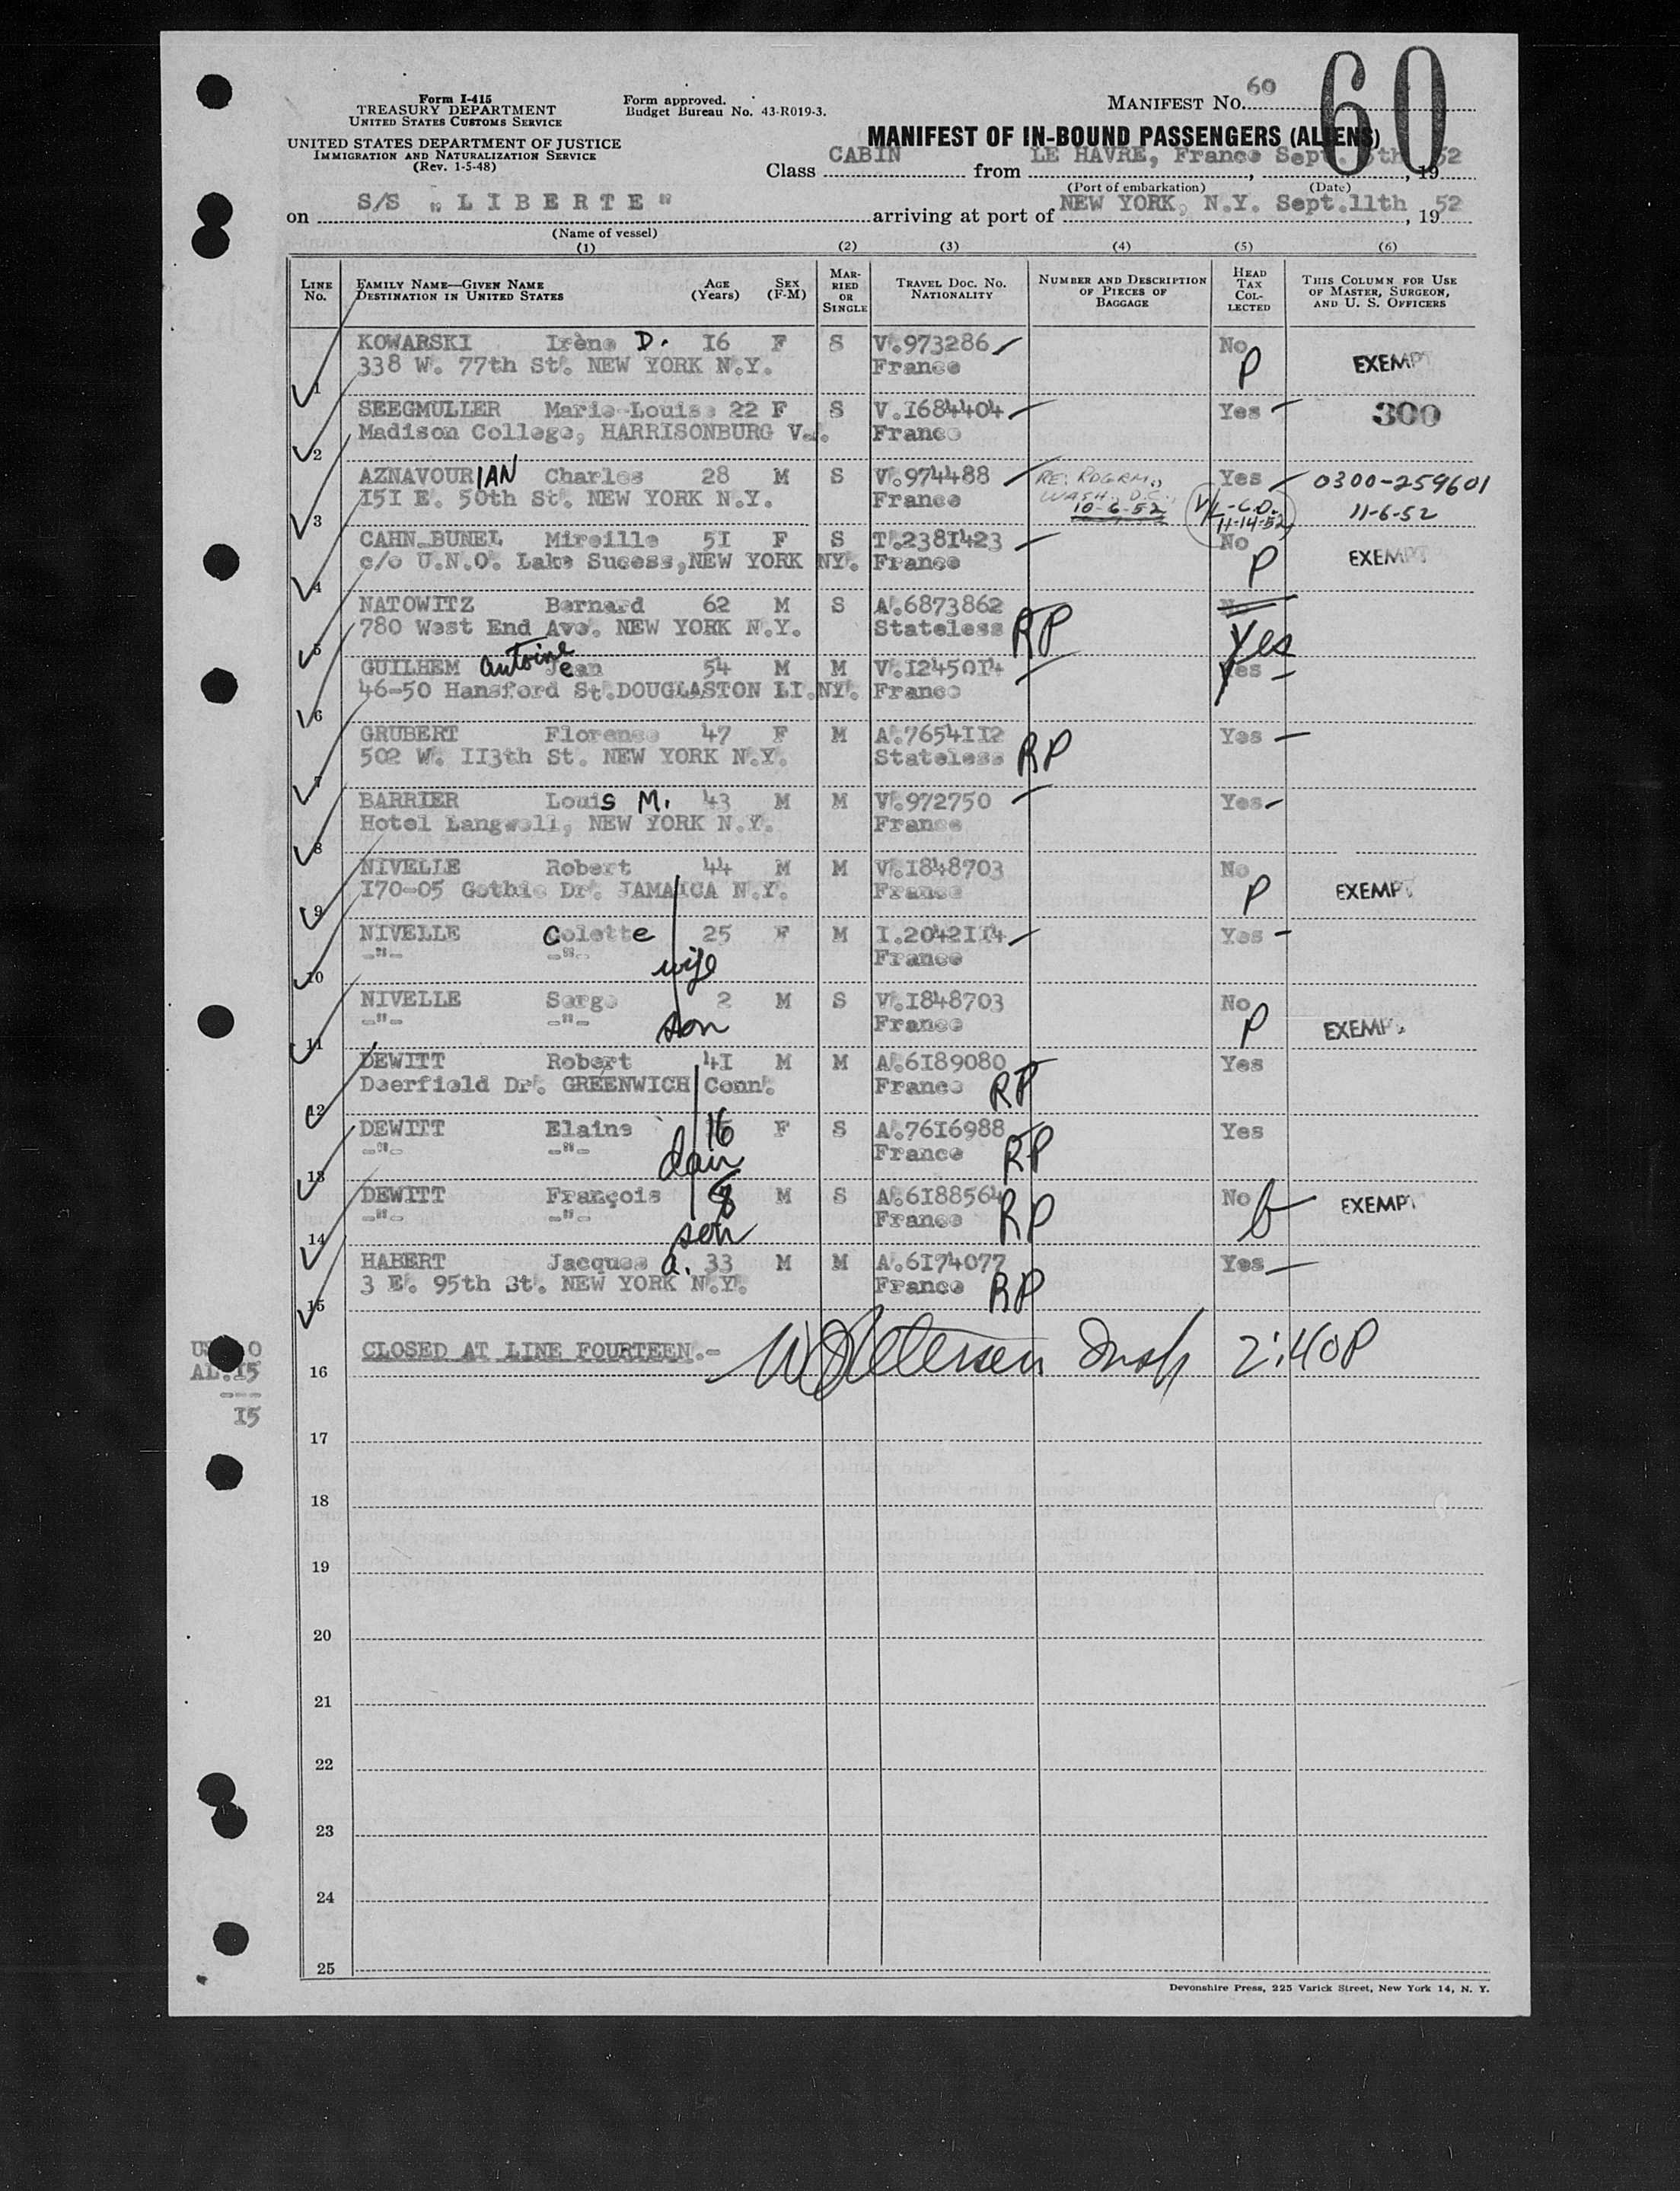 60
Form I-415
TREASURY DEPARTMENT
UNITED STATES CUSTOMS SERVICE
UNITED STATES DEPARTMENT OF JUSTICE
IMMIGRATION AND NATURALIZATION SERVICE
(Rev. 1-5-48)
Form approved.
Budget Bureau No. 43-R019-3.
MANIFEST No. 60
MANIFEST OF IN-BOUND PASSENGERS (ALIENS)
Class CABIN from LE HAVRE, France Sept. , 19 52
(Port of embarkation) (Date)
on S/S "LIBERTE" arriving at port of NEW YORK, N.Y. Sept.11th , 19 52
(Name of vessel)
(1) (2) (3) (4) (5) (6)
LINE No. FAMILY NAME—GIVEN NAME DESTINATION IN UNITED STATES AGE (Years) SEX (F-M) MARRIED OR SINGLE TRAVEL DOC. NO. NATIONALITY NUMBER AND DESCRIPTION OF PIECES OF BAGGAGE HEAD TAX COLLECTED THIS COLUMN FOR USE OF MASTER, SURGEON, AND U. S. OFFICERS
KOWARSKI Irène D. 16 F S V.973286 No
1 338 W. 77th St. NEW YORK N.Y. France P EXEMPT
SEEGMULLER Marie-Louise 22 F S V.1684404 Yes 300
2 Madison College, HARRISONBURG Va. France
AZNAVOURIAN Charles 28 M S V.974488 RE: RDGRM., Yes 0300-259601
3 151 E. 50th St. NEW YORK N.Y. France WASH., D.C., 10-6-52 V/L-C.D. 11-14-52 11-6-52
CAHN BUNEL Mireille 51 F S T.2381423 No
4 c/o U.N.O. Lake Sucess, NEW YORK NY. France P EXEMPT
NATOWITZ Bernard 62 M S A.6873862 No
5 780 West End Ave. NEW YORK N.Y. Stateless RP Yes
GUILHEM Antoine Jean 54 M M V.1245014 Yes
6 46-50 Hansford St. DOUGLASTON LI.NY. France
GRUBERT Florence 47 F M A.7654112 Yes
7 502 W. 113th St. NEW YORK N.Y. Stateless RP
BARRIER Louis M. 43 M M V.972750 Yes
8 Hotel Langwell, NEW YORK N.Y. France
NIVELLE Robert 44 M M V.1848703 No
9 170-05 Gothic Dr. JAMAICA N.Y. France P EXEMPT
NIVELLE Colette 25 F M I.2042114 Yes
10 -"- -"- wife France
NIVELLE Serge 2 M S V.1848703 No
11 -"- -"- son France P EXEMPT
DEWITT Robert 41 M M A.6189080 Yes
12 Deerfield Dr. GREENWICH Conn. France RP
DEWITT Elaine 16 F S A.7616988 Yes
13 -"- -"- dau France RP
DEWITT François 8 M S A.6188564 No EXEMPT
14 -"- -"- son France RP
HABERT Jacques A. 33 M M A.6174077 Yes
15 3 E. 95th St. NEW YORK N.Y. France RP
US. 0
AL.15
---
15
16 CLOSED AT LINE FOURTEEN.- Petersen Insp 2:40P
17
18
19
20
21
22
23
24
25
Devonshire Press, 225 Varick Street, New York 14, N. Y.